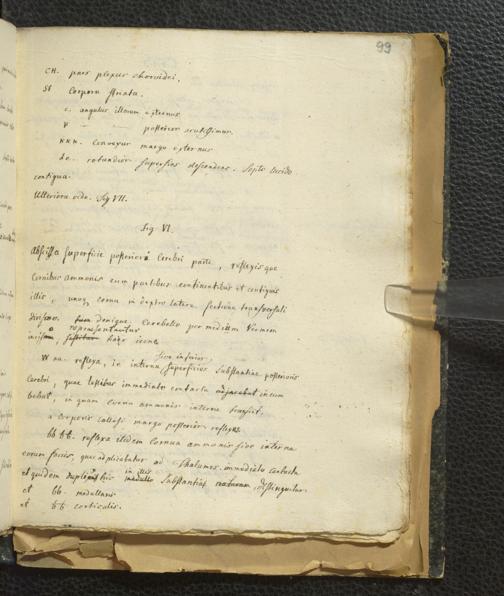 99
CH. pars plexus choroidei.
St Corpora striata.
c. angulus illorum externus
p — — posterior acutissimus.
nnn. Convexus margo externus
do. rotundior superficies descendens. Septo lucido
contigua.
Ulteriora vide. Fig VII.
Fig. VI.
Abscissa superficie posteriori cerebri parte, reflexisque
Cornibus ammonis cum partibus continentibus et contiguis
illis, unoq cornu in dextro latere sectione transversali
diviso. denique Cerebello per medium Vermem
repraesentantur
inciso, haec icone
sive inferior.
W na. reflexa, in interna superficies substantiae posterioris
Cerebri, quae lobibus immediato contactu incum
bebat, in quam cornu ammonis interne transit.
a Corporis callosi margo posterior reflexus
bb bb. reflexa itidem cornua ammonis sive interna
eorum facies, quae adplicabatur ad Thalamos immediato contactu
in illis
et quidem duplex substantiae distinguitur.
et bb. medullaris
et bb corticalis.